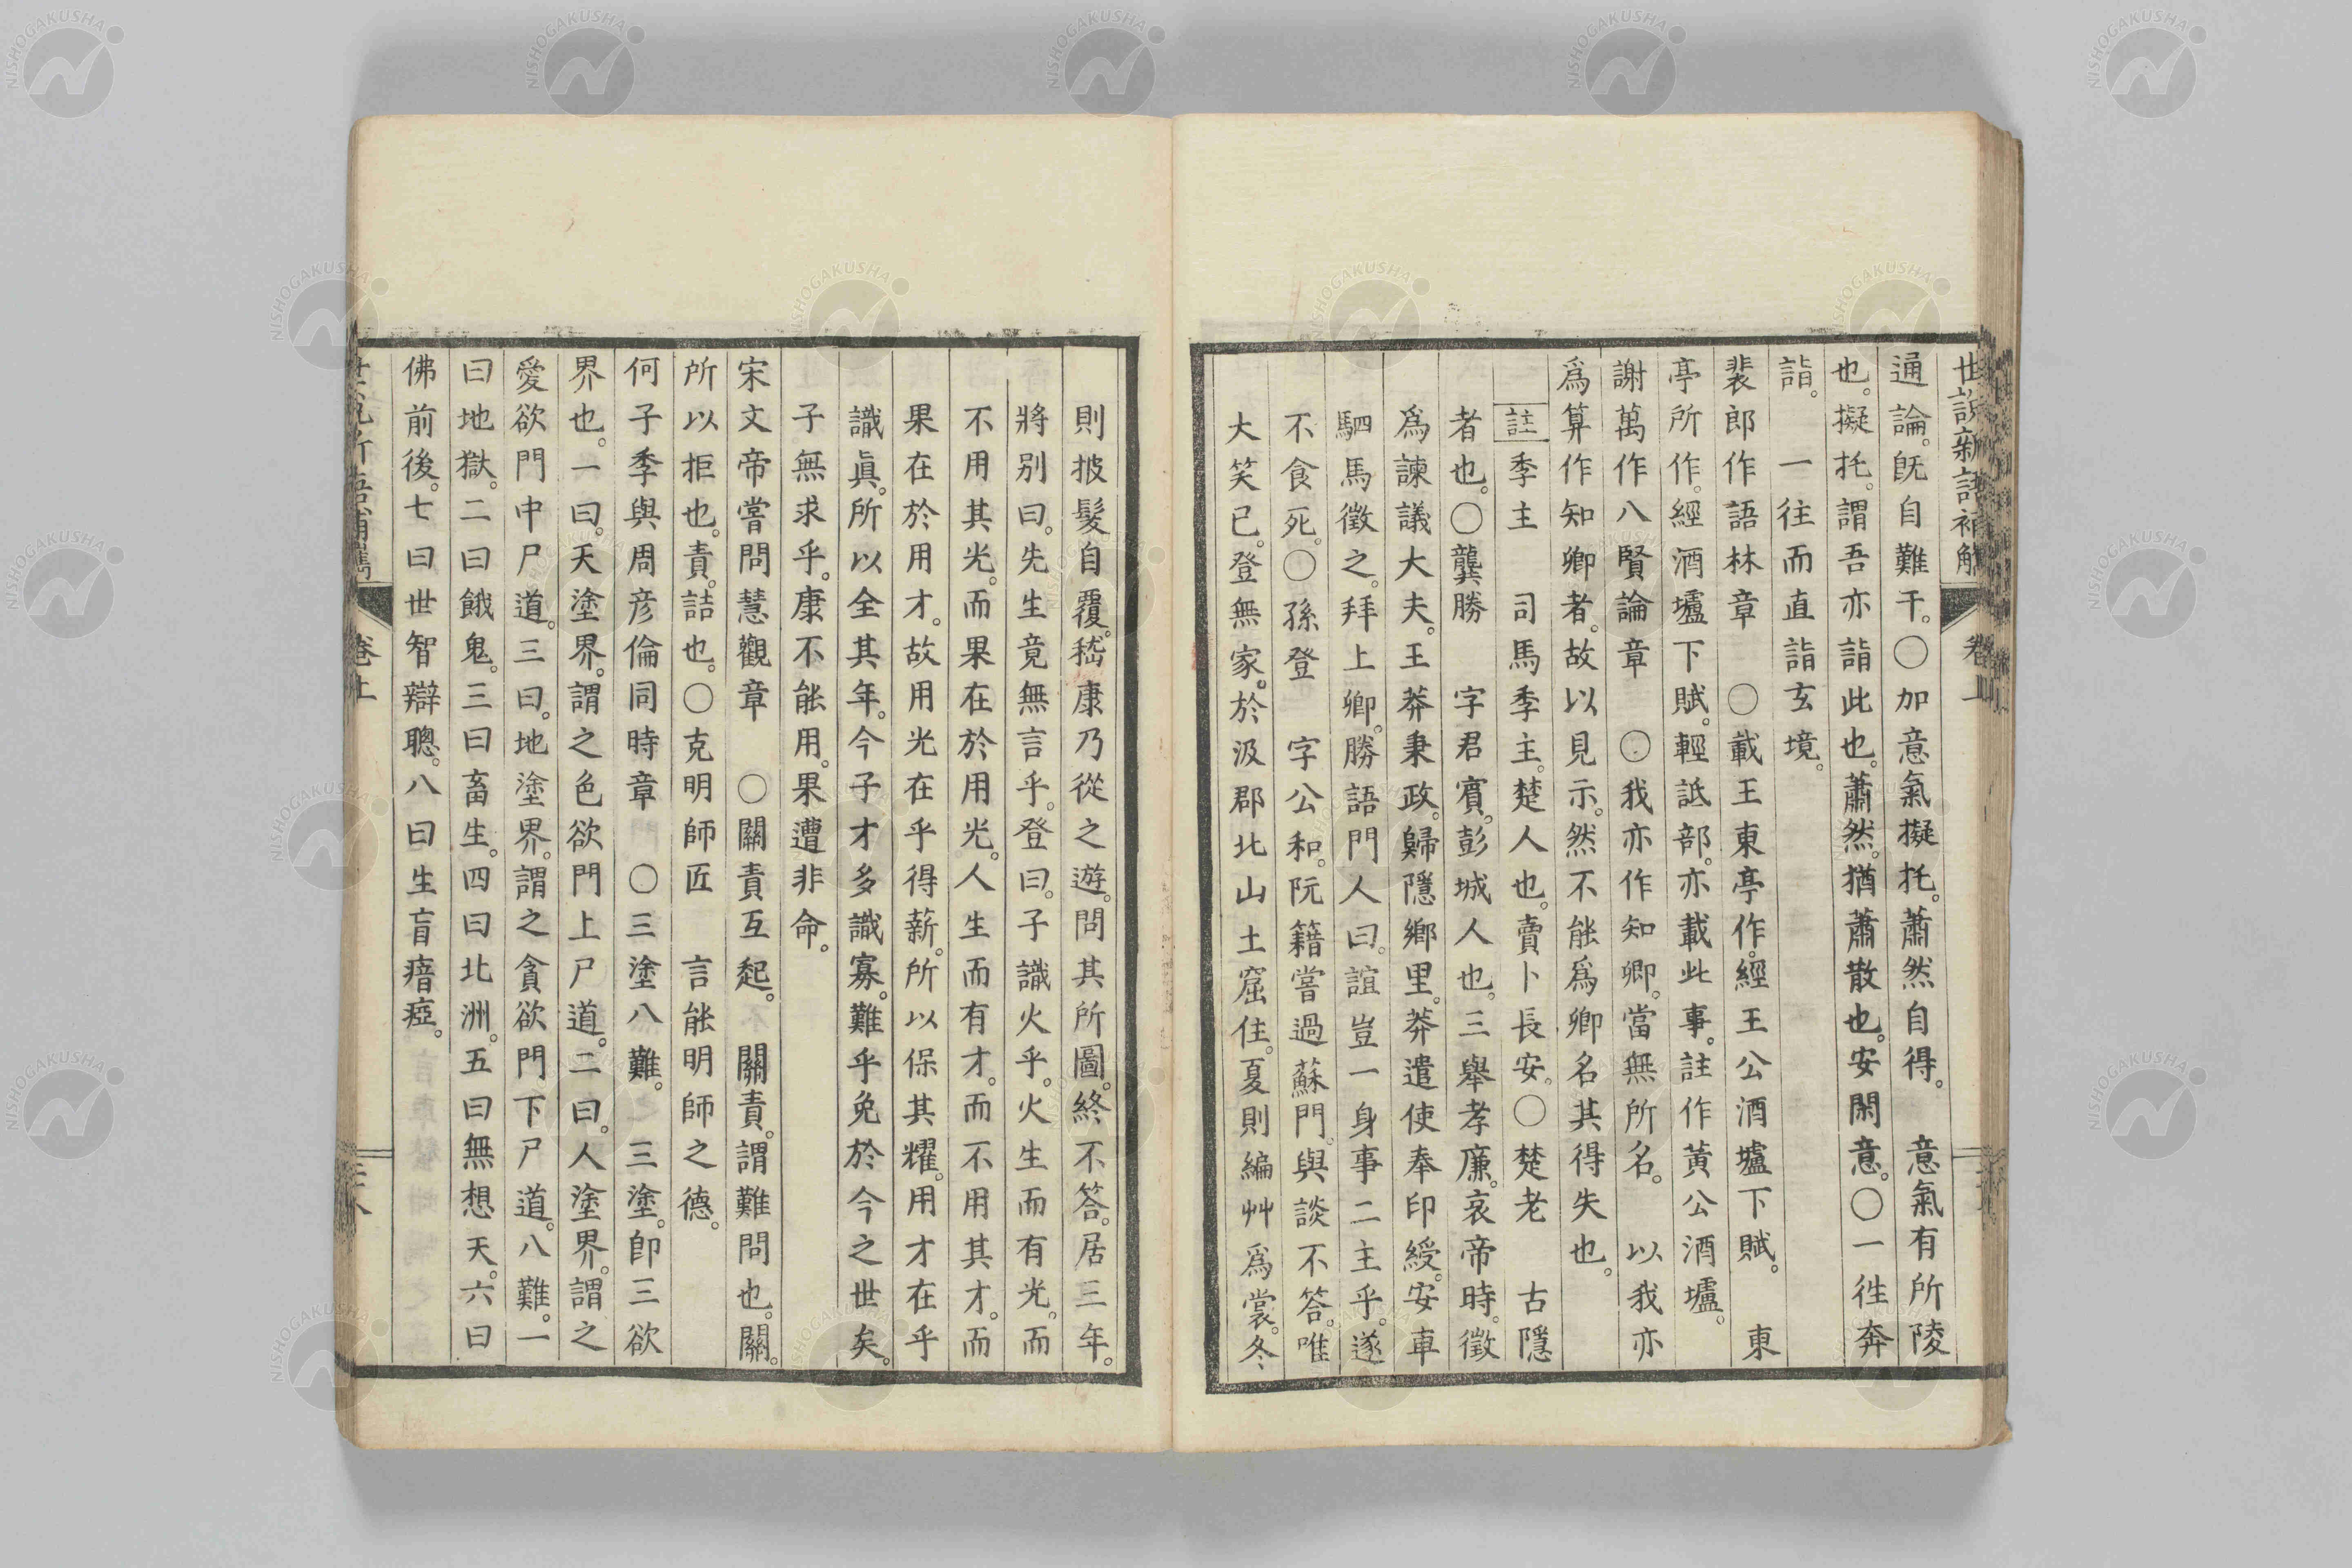 世說新語補觿 卷上
通論。旣自難干。〇加意氣擬托。蕭然自得。 意氣有所陵
也。擬托。謂吾亦詣此也。蕭然。猶蕭散也。安閑意。〇一徃奔
詣。 一往而直詣玄境。
裴郎作語林章 〇載王東亭作。經王公酒壚下賦。 東
亭所作。經酒壚下賦。輕詆部。亦載此事。註作黃公酒壚。
謝萬作八賢論章 〇我亦作知卿。當無所名。 以我亦
爲算作知卿者。故以見示。然不能爲卿名其得失也。
註 季主 司馬季主。楚人也。賣卜長安。〇楚老 古隱
者也。〇龔勝 字君賓。彭城人也。三舉孝廉。哀帝時。徵
爲諫議大夫。王莽秉政。歸隱鄉里。莽遣使奉印綬。安車
駟馬徵之。拜上卿。勝語門人曰。誼豈一身事二主乎。遂
不食死。〇孫登 字公和。阮籍嘗過蘇門。與談不答。唯
大笑已。登無家。於汲郡北山土窟住。夏則編艸爲裳。冬
則披髮自覆。嵇康乃從之遊。問其所圖。終不答。居三年。
將别曰。先生竟無言乎。登曰。子識火乎。火生而有光。而
不用其光。而果在於用光。人生而有才。而不用其才。而
果在於用才。故用光在乎得薪。所以保其耀。用才在乎
識眞。所以全其年。今子才多識寡。難乎免於今之世矣。
子無求乎。康不能用。果遭非命。
宋文帝嘗問慧觀章 〇關責互起。 關責。謂難問也。關。
所以拒也。責。詰也。〇克明師匠 言能明師之德。
何子季與周彦倫同時章 〇三塗八難。 三塗。卽三欲
界也。一曰。天塗界。謂之色欲門上尸道。二曰。人塗界。謂之
愛欲門中尸道。三曰。地塗界。謂之貪欲門下尸道。八難。一
曰地獄。二曰餓鬼。三曰畜生。四曰北洲。五曰無想天。六曰
佛前後。七曰世智辯聰。八曰生盲瘖瘂。
卷上
NISHOGAKUSHA